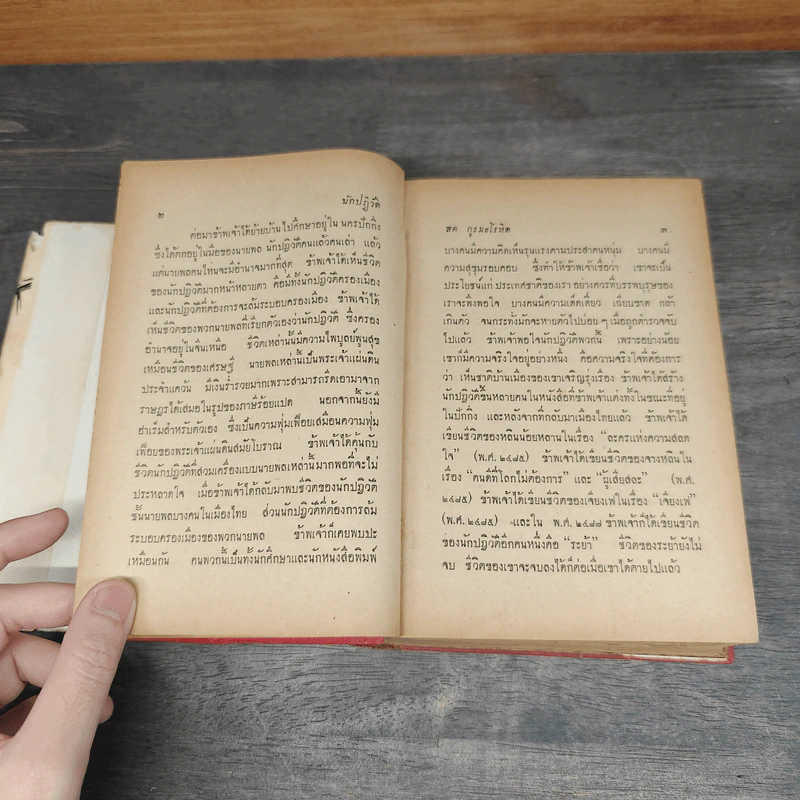 ๒
นักปฏิวัติ
ต่อมาข้าพเจ้าได้ย้ายบ้านไปศึกษาอยู่ใน นครปักกิ่ง
ซึ่งได้ตกอยู่ในมือของนายพล นักปฏิวัติคนแล้วคนเล่า แล้ว
แต่นายพลคนไหนจะมีอำนาจมากที่สุด ข้าพเจ้าได้เห็นชีวิต
ของนักปฏิวัติมากหน้าหลายตา คือมีทั้งนักปฏิวัติครองเมือง
และนักปฏิวัติที่ต้องการจะล้มระบอบครองเมือง ข้าพเจ้าได้
เห็นชีวิตของพวกนายพลที่เรียกตัวเองว่านักปฏิวัติ ซึ่งครอง
อำนาจอยู่ในจีนเหนือ ชีวิตเหล่านั้นมีความไพบูลย์พูนสุข
เหมือนชีวิตของเศรษฐี นายพลเหล่านี้เป็นพระเจ้าแผ่นดิน
ประจำแคว้น มีเงินร่ำรวยมากเพราะสามารถรีดเอามาจาก
ราษฎรได้เสมอในรูปของภาษีร้อยแปด นอกจากนั้นยังมี
ฮาเร็มสำหรับตัวเอง ซึ่งเป็นความฟุ่มเฟือยเสมือนความฟุ่ม
เฟือยของพระเจ้าแผ่นดินสมัยโบราณ ข้าพเจ้าได้คุ้นกับ
ชีวิตนักปฏิวัติที่สวมเครื่องแบบนายพลเหล่านั้นมากพอที่จะไม่
ประหลาดใจ เมื่อข้าพเจ้าได้กลับมาพบชีวิตของนักปฏิวัติ
ชั้นนายพลบางคนในเมืองไทย ส่วนนักปฏิวัติที่ต้องการล้ม
ระบอบครองเมืองของพวกนายพล ข้าพเจ้าก็เคยพบปะ
เหมือนกัน คนพวกนั้นเป็นทั้งนักศึกษาและนักหนังสือพิมพ์
สด กูรมะโรหิต
๓
บางคนมีความคิดเห็นรุนแรงตามประสาคนหนุ่ม บางคนมี
ความสุขุมรอบคอบ ซึ่งทำให้ข้าพเจ้าเชื่อว่า เขาจะเป็น
ประโยชน์แก่ ประเทศชาติของเรา อย่างควรที่บรรพบุรุษของ
เราจะพึงพอใจ บางคนมีความเด็ดเดี่ยว เฉียบขาด กล้า
เกินตัว จนกระทั่งมักจะหายตัวไปบ่อย ๆ เมื่อถูกตำรวจจับ
ไปแล้ว ข้าพเจ้าพอใจนักปฏิวัติพวกนั้น เพราะอย่างน้อย
เขาก็มีความจริงใจอยู่อย่างหนึ่ง คือความจริงใจที่ต้องการ
ว่า เห็นชาติบ้านเมืองของเขาเจริญรุ่งเรือง ข้าพเจ้าได้สร้าง
นักปฏิวัติขึ้นหลายคน ในหนังสือที่ข้าพเจ้าแต่งทั้งในขณะที่อยู่
ในปักกิ่ง และหลังจากที่กลับมาเมืองไทยแล้ว ข้าพเจ้าได้
เขียนชีวิตของหลินน้อยหลานในเรื่อง “ละครแห่งความสลด
ใจ” (พ.ศ. ๒๔๘๕) ข้าพเจ้าได้เขียนชีวิตของจางหลินใน
เรื่อง “คนดีที่โลกไม่ต้องการ” และ “ผู้เสียสละ” (พ.ศ.
๒๔๘๕) ข้าพเจ้าได้เขียนชีวิตของเจี่ยงเฟในเรื่อง “เจี่ยงเฟ”
(พ.ศ. ๒๔๘๕) และใน พ.ศ. ๒๔๙๘ ข้าพเจ้าก็ได้เขียนชีวิต
ของนักปฏิวัติอีกคนหนึ่งคือ “ระย้า” ชีวิตของระย้ายังไม่
จบ ชีวิตของเขาจะจบลงได้ก็ต่อเมื่อเขาได้ตายไปแล้ว